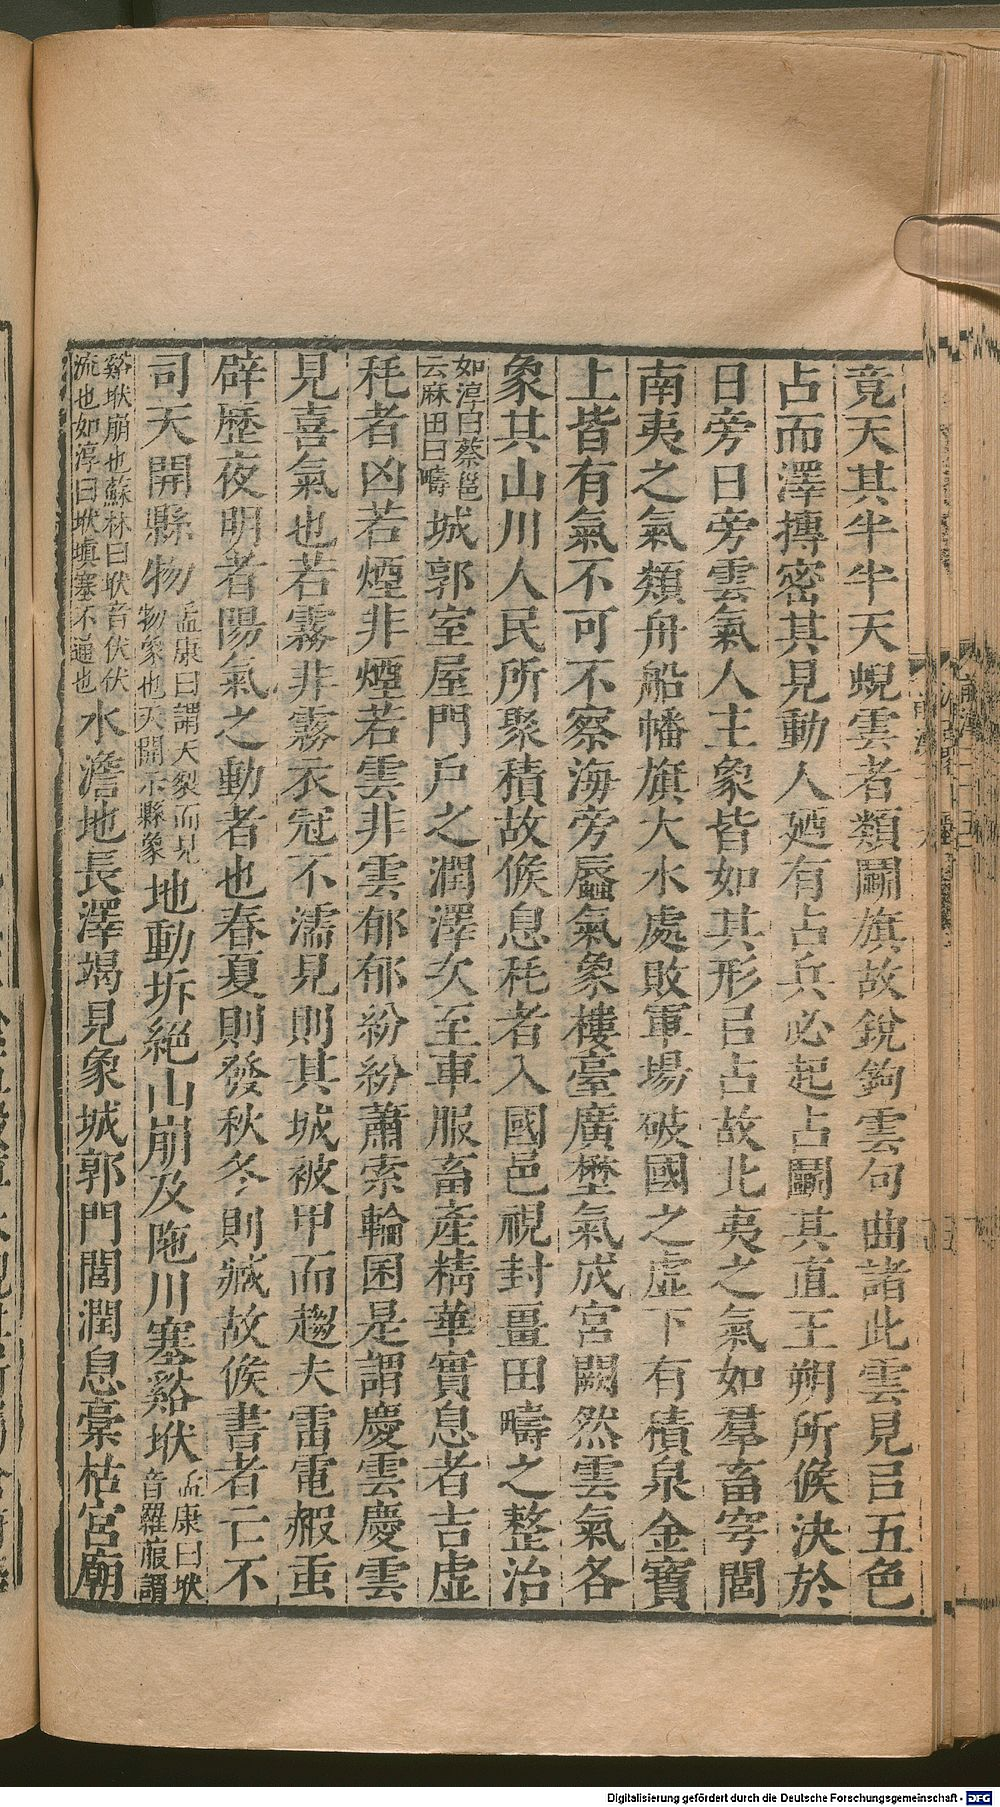 竟天其半半天蜺雲者類鬭旗故銳鉤雲句曲諸此雲見㠯五色
占而澤摶密其見動人廼有占兵必起占鬭其直王朔所候決於
日旁日旁雲氣人主象皆如其形㠯占故北夷之氣如羣畜穹閭
南夷之氣類舟船幡旗大水處敗軍場破國之虛下有積泉金寶
上皆有氣不可不察海旁蜃氣象樓臺廣壄氣成宮闕然雲氣各
象其山川人民所聚積故候息秏者入國邑視封畺田疇之整治
如淳曰蔡邕云麻田曰疇城郭室屋門戶之潤澤次至車服畜產精華實息者吉虛
秏者凶若煙非煙若雲非雲郁郁紛紛蕭索輪囷是謂慶雲慶雲
見喜氣也若霧非霧衣冠不濡見則其城被甲而趨夫雷電赮䖝
辟歷夜明者陽氣之動者也春夏則發秋冬則臧故候書者亡不
司天開縣物孟康曰謂天裂而見物象也天開示縣象地動坼絕山崩及陁川塞谿垘孟康曰垘音羅菔謂
谿垘崩也蘇林曰垘音伏伏流也如淳曰垘塡塞不通也水澹地長澤竭見象城郭門閭潤息槀枯宮廟
Digitalisierung gefördert durch die Deutsche Forschungsgemeinschaft - DFG